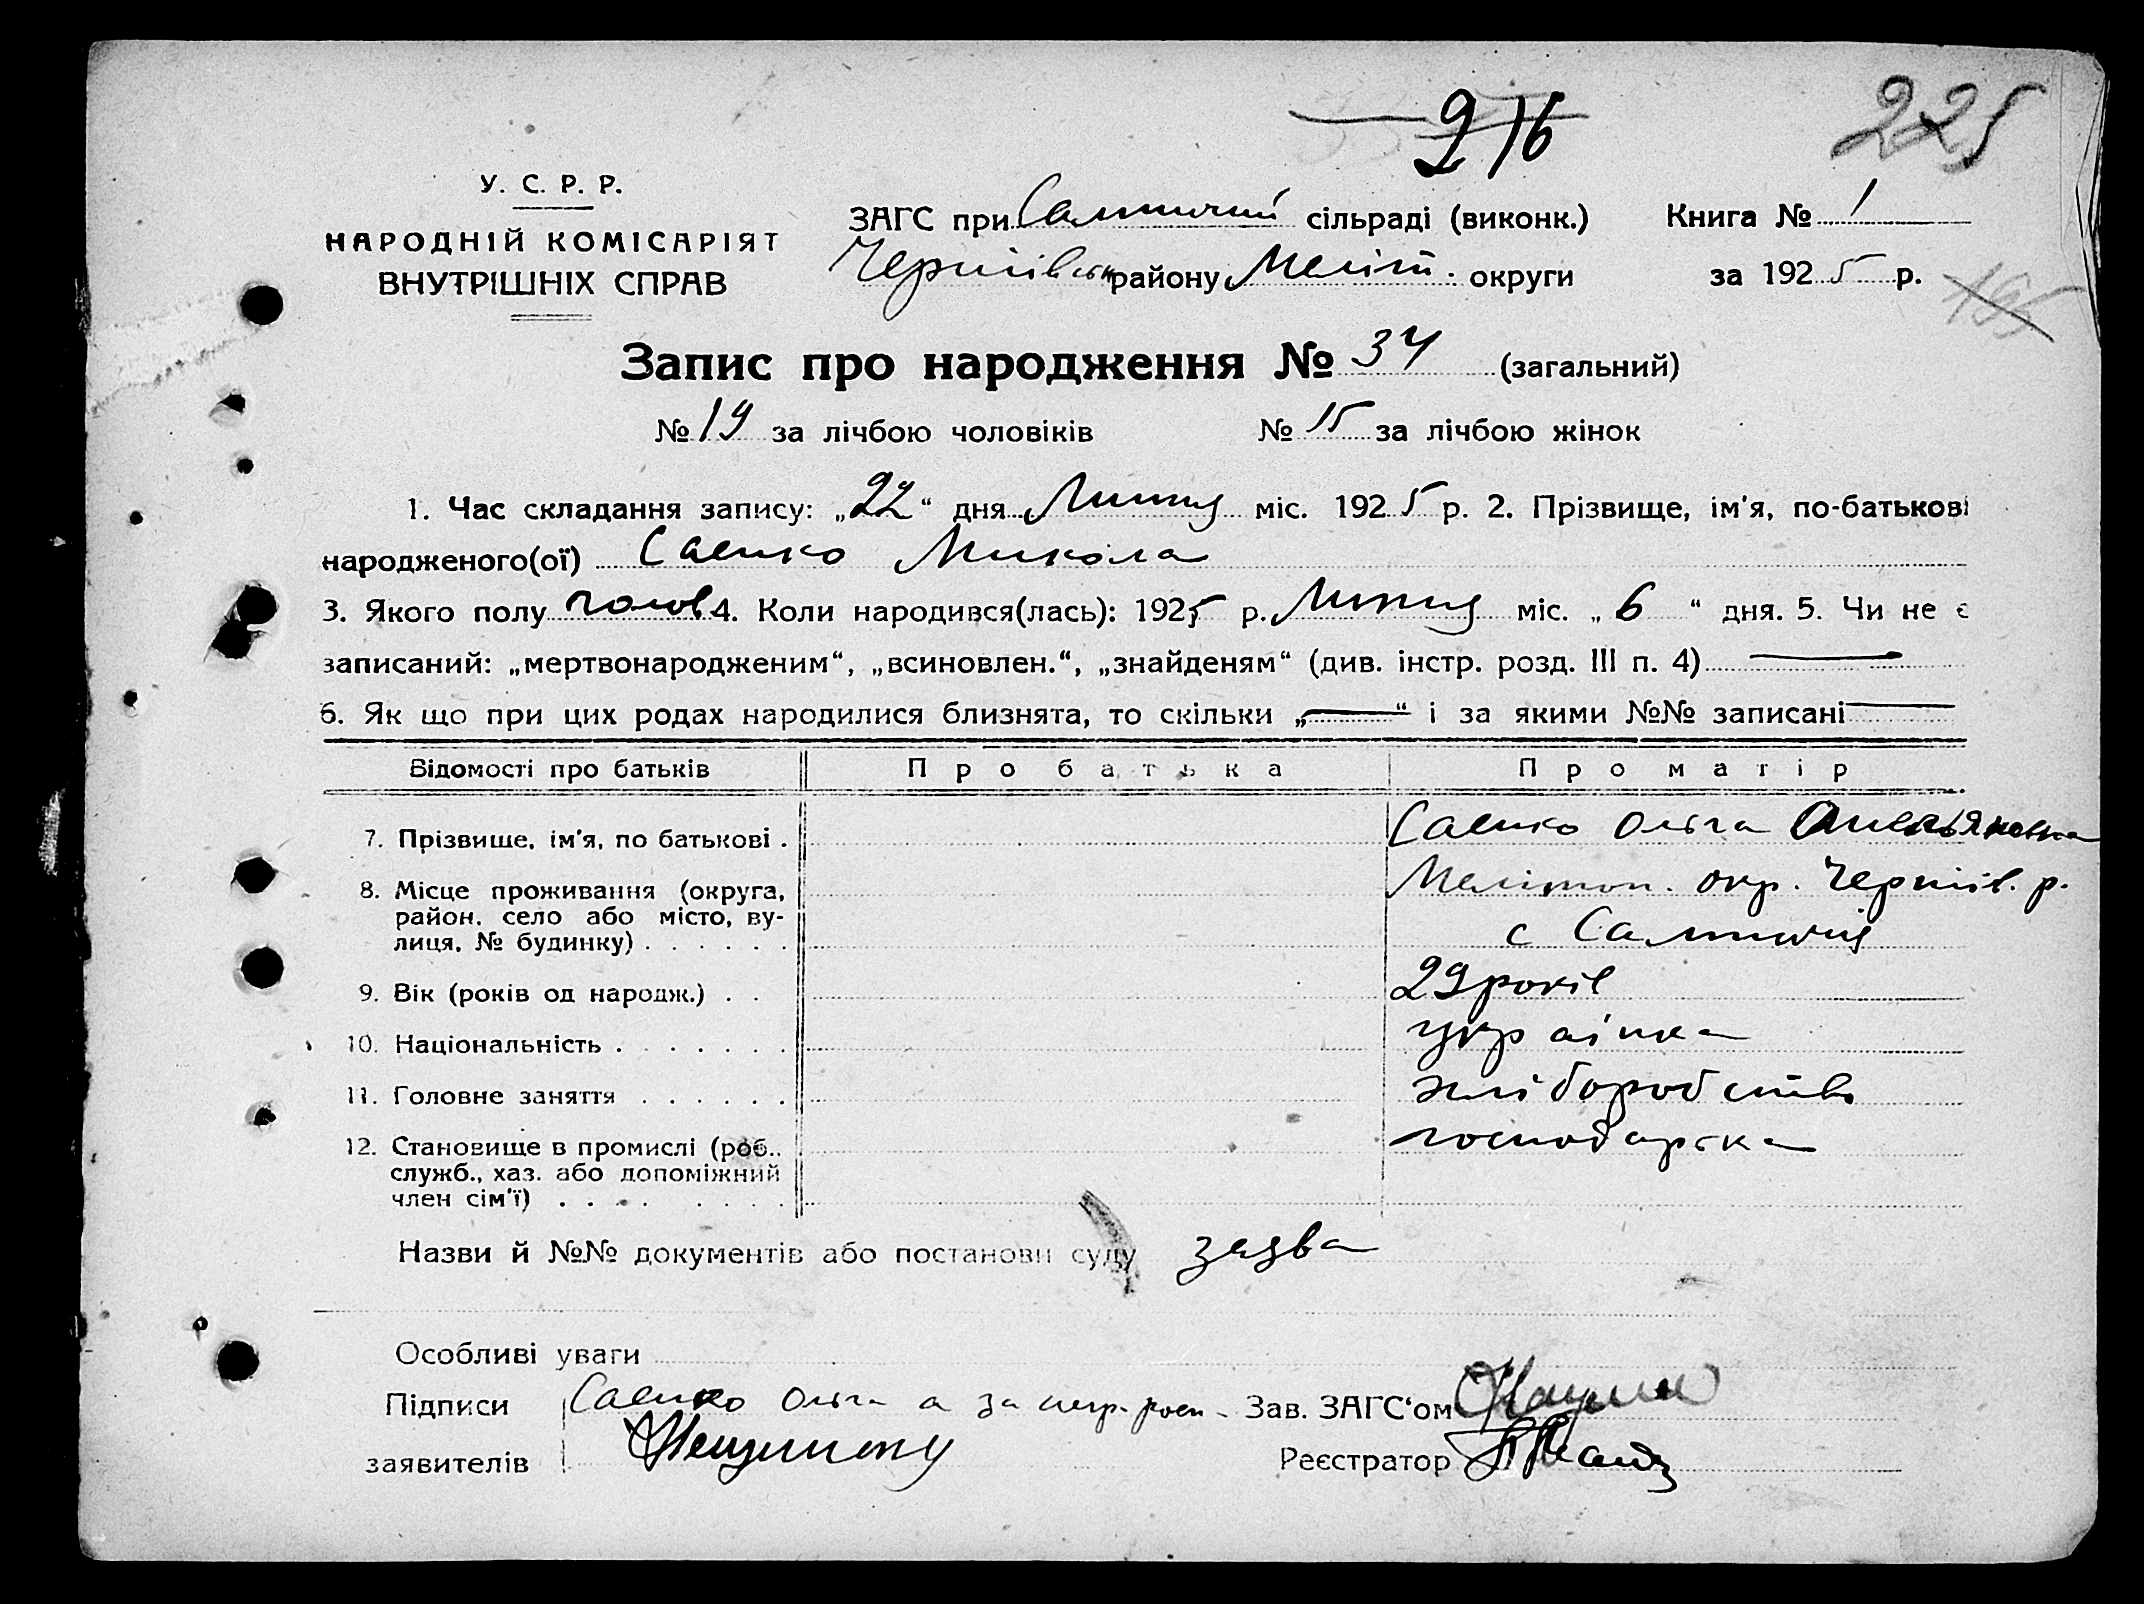 216
225
У. С. Р. Р.
НАРОДНІЙ КОМІСАРІЯТ
ВНУТРІШНІХ СПРАВ
ЗАГС при сільраді (виконк.) Книга № 1
району Меліт. округи за 1925 р.
195
Запис про народження № 34 (загальний)
№ 19 за лічбою чоловіків № 15 за лічбою жінок
1. Час складання запису: „22“ дня Липня міс. 1925 р. 2. Прізвище, ім'я, по-батькові
народженого(ої) Саенко Микола
3. Якого полу чолов 4. Коли народився(лась): 1925 р. Липня міс. „6“ дня. 5. Чи не є
записаний: „мертвонародженим“, „всиновлен.“, „знайденям“ (див. інстр. розд. III п. 4) —
6. Як що при цих родах народилися близнята, то скільки „—“ і за якими №№ записані —
Відомості про батьків Про батька Про матір
7. Прізвище, ім'я, по батькові . Саенко Ольга
8. Місце проживання (округа, Мелітоп. окр. Черніїв. р.
район, село або місто, ву-
лиця, № будинку) . . . . . . с
9. Вік (років од народж.) . . 29 років
10. Національність . . . . . . . українка
11. Головне заняття . . . . . . хліборобство
12. Становище в промислі (роб., господарька
служб., хаз. або допоміжний
член сім'ї) . . . . . . . .
Назви й №№ документів або постанови суду заява
Особливі уваги
Підписи Саенко Ольга а за негр. росп. Зав. ЗАГС‘ом
заявителів Реєстратор